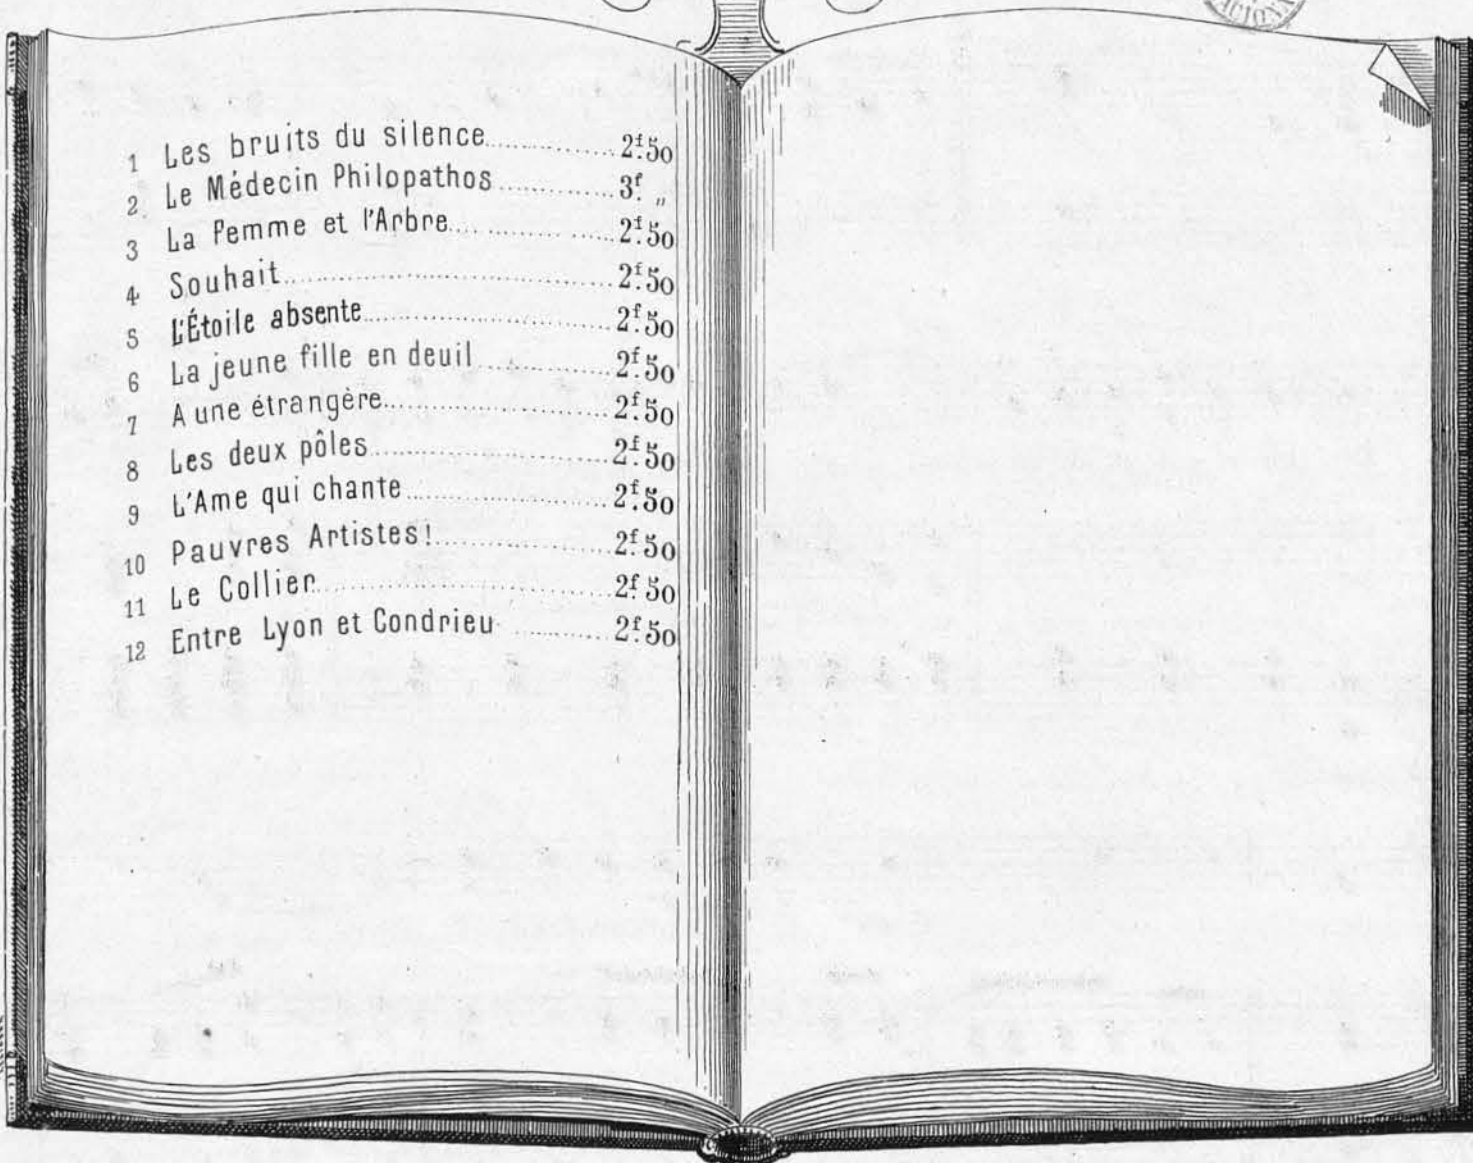 1 Les bruits du silence 2f.50
2 Le Médecin Philopathos 3f. „
3 La Femme et l'Arbre 2f.50
4 Souhait 2f.50
5 L'Étoile absente 2f.50
6 La jeune fille en deuil 2f.50
7 A une étrangère 2f.50
8 Les deux pôles 2f.50
9 L'Ame qui chante 2f.50
10 Pauvres Artistes! 2f.50
11 Le Collier 2f.50
12 Entre Lyon et Condrieu 2f.50